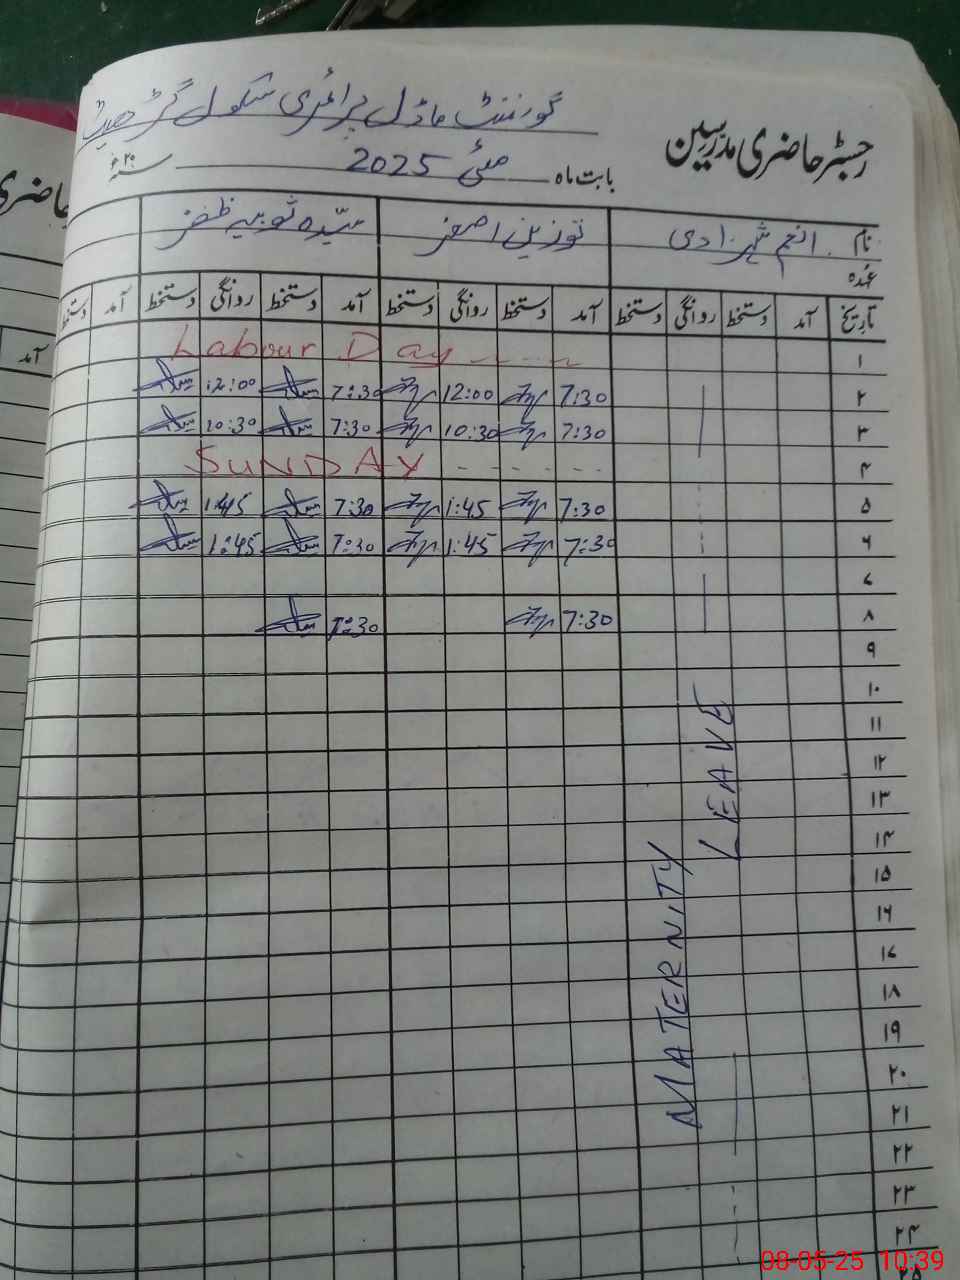 گورنمنٹ ماڈل پرائمری سکول گڑھیٹ
رجسٹر حاضری مدرسین
بابت ماہ مئی 2025 سنہ ۲۰ء
نام انعم شہزادی نوزین اصغر سیّدہ ثوبیہ ظفر
عہدہ
تاریخ آمد دستخط روانگی دستخط آمد دستخط روانگی دستخط آمد دستخط روانگی دستخط آمد دستخط
۱ Labour Day
۲ 7:30 12:00 7:30 12:00
۳ 7:30 10:30 7:30 10:30
۴ SUNDAY
۵ 7:30 1:45 7:30 1:45
۶ 7:30 1:45 7:30 1:45
۷
۸ 7:30 7:30
۹
۱۰
۱۱
۱۲
۱۳
۱۴
۱۵
۱۶
۱۷
۱۸
۱۹
۲۰
۲۱
۲۲
۲۳
۲۴
۲۵
MATERNITY
LEAVE
حاضری
آمد
08-05-25 10:39